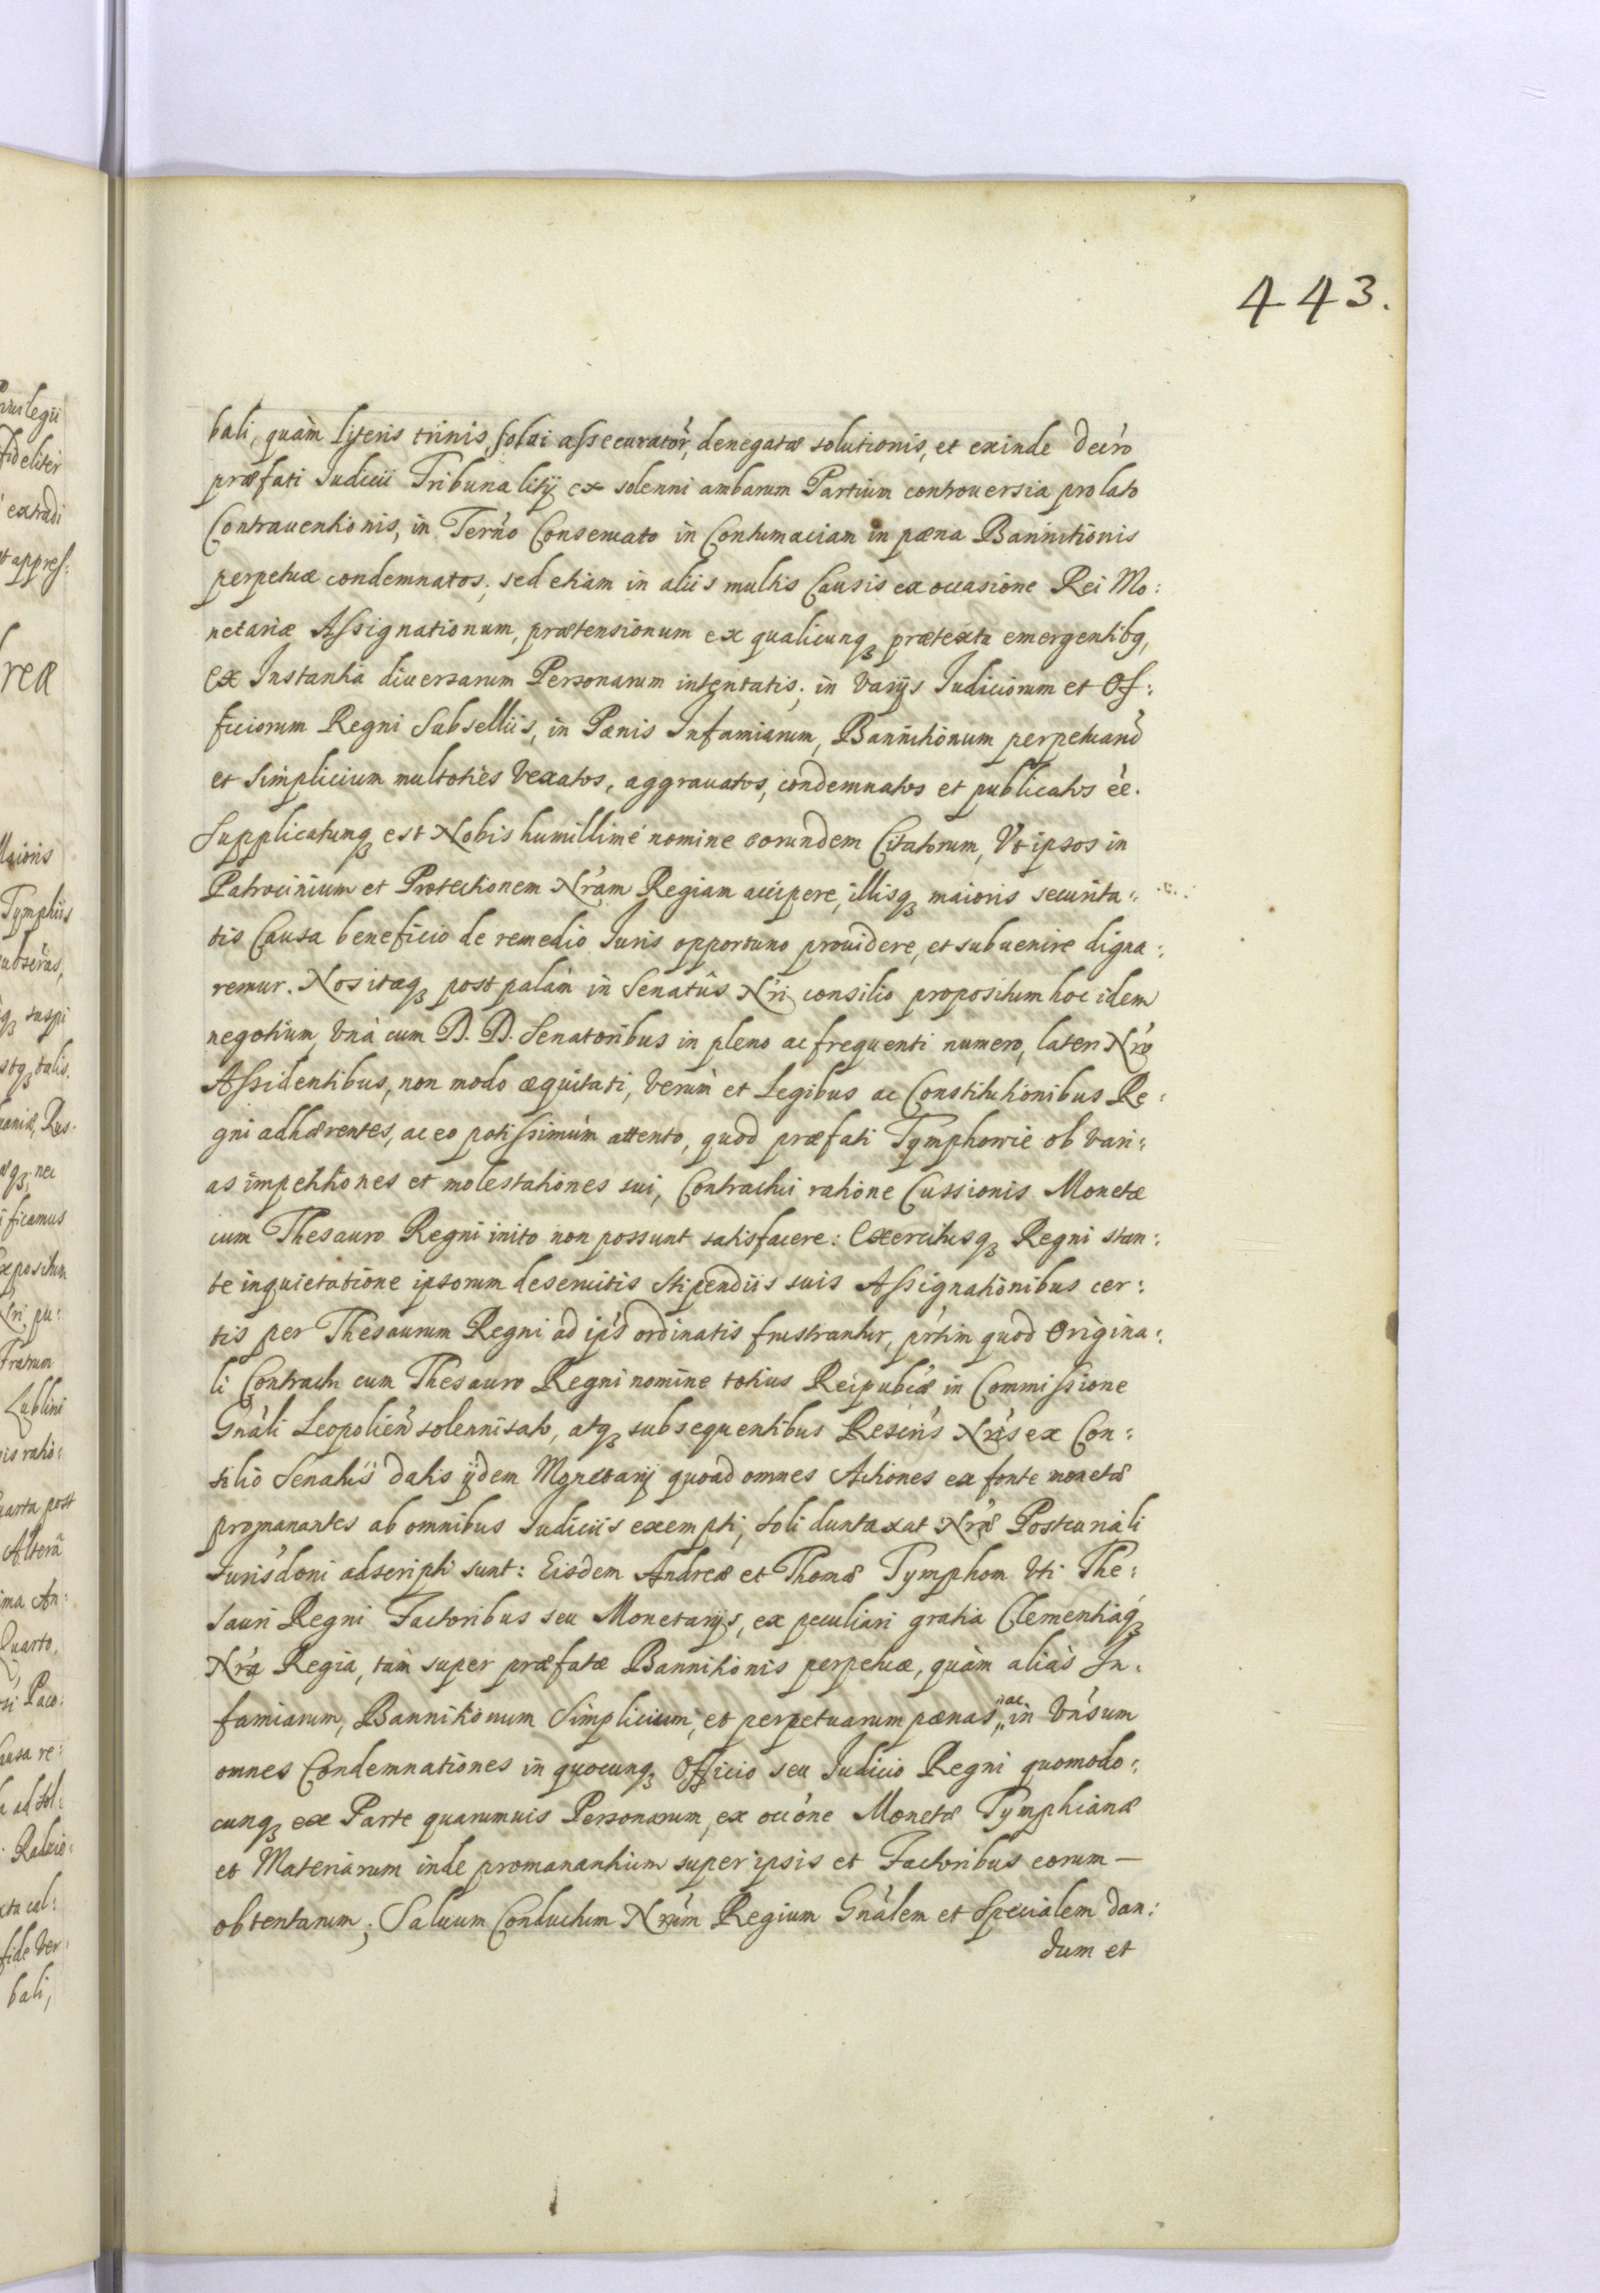 443.
bali, quàm literis trinis, solvi assecurator̃, denegatæ solutionis, et exinde Decr̃o
præfati Iudicii Tribunalitij ex solenni ambarum Partium controversia prolato
Contraventionis, in Term̃o Conservato in Contumaciam in pæna Bannitionis
perpetuæ condemnatos; sed etiam in aliis multis Causis ex occasione Rei Mo:
netariæ Assignationum, prætensionum ex qualicunq3 prætextu emergentibq,
ex Instantia diversarum Personarum intentatis; in Varijs Iudiciorum et Of:
ficiorum Regni Subselliis, in Pænis Infamiarum, Bannitionum perpetuarũ
et Simplicium multoties Vexatos, aggravatos, condemnatos et publicatos ẽe.
Supplicatumq3 est Nobis humillimè nomine eorundem Citatorum, Vt ipsos in
Patrocinium et Protectionem Nr̃am Regiam accipere, illisq3 maioris securita:
tis Causa beneficio de remedio Iuris opportuno providere, et subvenire digna:
remur. Nos itaq3 post palàm in Senatûs Nr̃i consilio propositum hoc idem
negotium, Vnà cum D. D. Senatoribus in pleno ac frequenti numero, lateri Nr̃o
Assidentibus, non modo æquitati, Verùm et Legibus ac Constitutionibus Re:
gni adhærentes, ac eo potissimùm attento, quod præfati Tymphowie ob Vari:
as impetitiones et molestationes sui, Contractui ratione Cussionis Monetæ
cum Thesauro Regni inito non possunt satisfacere: Exercitusq3 Regni stan:
te inquietatione ipsorum deservitis Stipendiis suis Assignationibus cer:
tis per Thesaurum Regni ad ip̃s ordinatis frustrantur, pr̃tim quod Origina:
li Contractu cum Thesauro Regni nomine totius Reipub̃cæ in Commissione
Gñali Leopolien̄ solennisato, atq3 subsequentibus Rescr̃is Nr̃is ex Con:
silio Senatûs datis ijdem Monetarij quoad omnes Actiones ex fonte monetæ
promanantes ab omnibus Iudiciis exempti, soli duntaxat Nr̃æ Postcuriali
Iurisdõni adscripti sunt: Eisdem Andreæ et Thomæ Tymphom Vti The:
sauri Regni Factoribus seu Monetarijs, ex peculiari gratia Clementiaq3
Nr̃a Regia, tam super præfatæ Bannitionis perpetuæ, quàm aliàs In:
famiarum, Bannitionum Simplicium, et perpetuarum pænas, ac in Vñsum
omnes Condemnationes in quocunq3 Officio seu Iudicio Regni quomodo:
cunq3 ex Parte quarumuis Personarum, ex occõne Monetæ Tymphianæ
et Materiarum inde promanantium super ipsis et Factoribus eorum—
obtentarum; Salvum Conductum Nr̃um Regium Gñalem et Specialem dan:
dum et